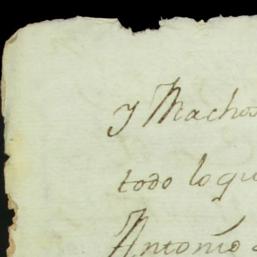 y Machos
todo loqu
Antonio